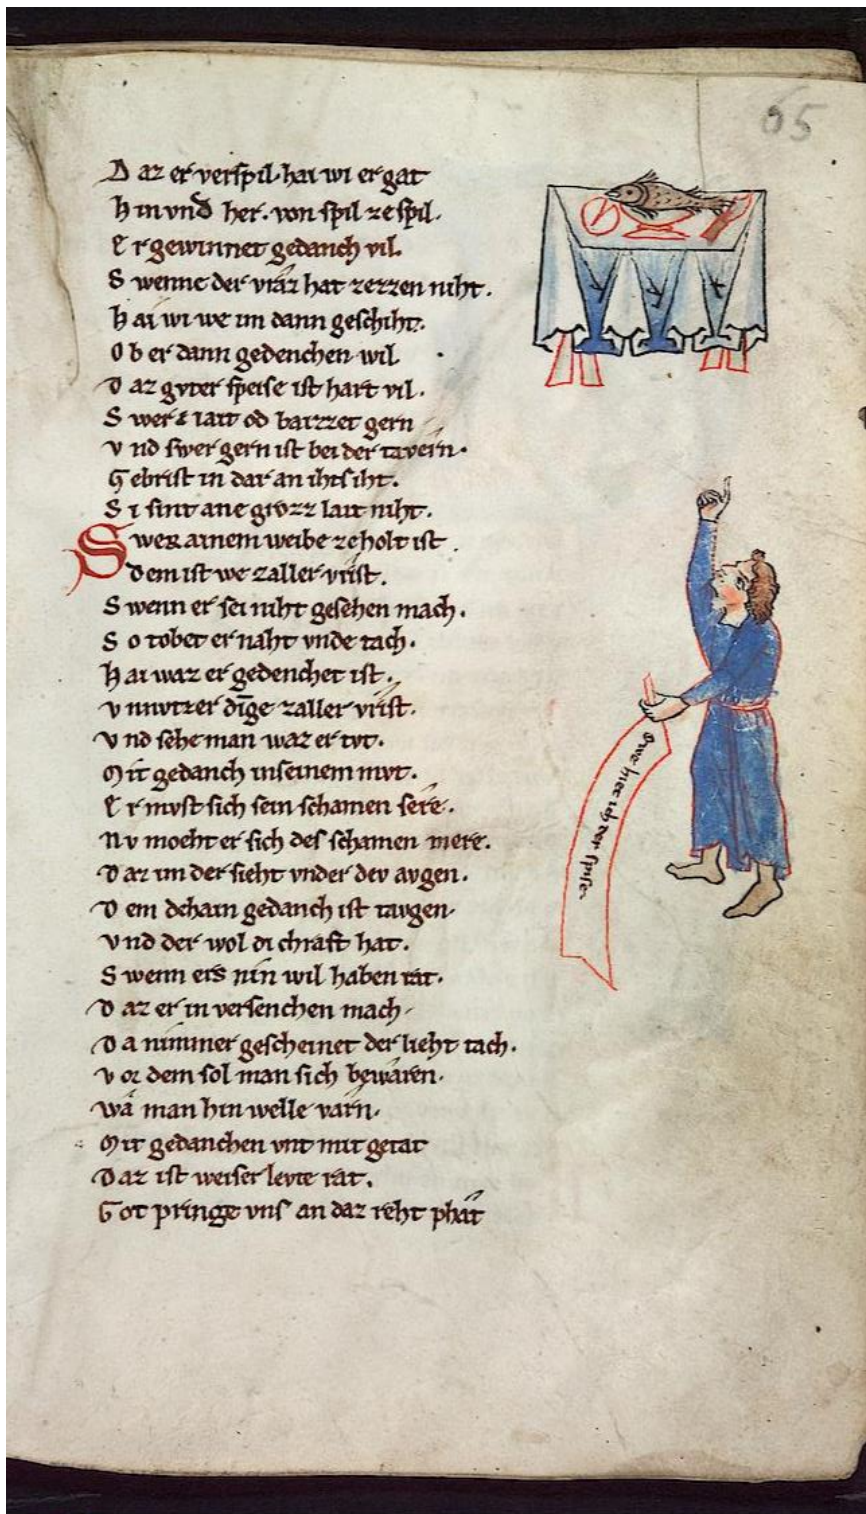 65
D az er verspil. hai wi er gat
H in vnd her. von spil ze spil.
E r gewinnet gedanch vil.
S wenne der vraz hat zezzen niht.
H ai wi we im dann geschiht.
O b er dann gedenchen wil
D az gvter speise ist hart vil.
S wer iait od baizzet gern
V nd swer gern ist bei der tavern.
G ebrist in dar an ihtsiht.
S i sint ane grozz lait niht.
S wer ainem weibe ze holt ist.
dem ist we zaller vrist.
S wenn er sei niht gesehen mach.
S o tobet er naht vnde tach.
H ai waz er gedenchet ist.
V nnvtzer dinge zaller vrist.
V nd sehe man waz er tvt.
M it gedanch in seinem mvt.
E r mvst sich sein schamen sere.
N v moeht er sich des schamen mere.
D az im der sieht vnder dev avgen.
D em dehain gedanch ist tavgen.
V nd der wol di chraft hat.
S wenn ers nin wil haben rat.
D az er in versenchen mach.
D a nimmer gescheinet der lieht tach.
V or dem sol man sich bewaren.
wa man hin welle varn.
M it gedanchen vnt mit getat
D az ist weiser levte rat.
G ot pringe vns an daz reht phat
Owe hiet ich der spise